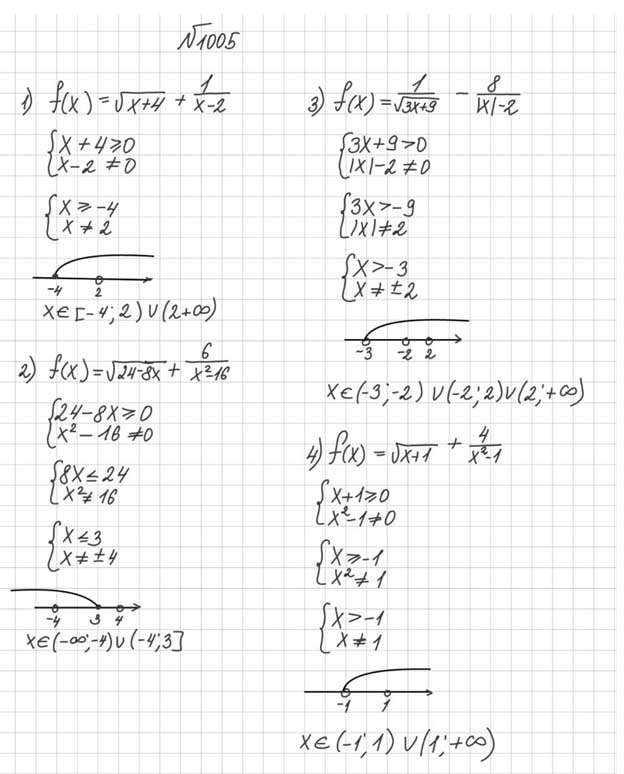 №1005
1) f(x) = √x+4 + 1/x-2
{x + 4 ≥ 0
x - 2 ≠ 0
{x ≥ -4
x ≠ 2
-4 2
x ∈ [-4; 2) ∪ (2+∞)
2) f(x) = √24-8x + 6/x²-16
{24-8x ≥ 0
x² - 16 ≠ 0
{8x ≤ 24
x² ≠ 16
{x ≤ 3
x ≠ ±4
-4 3 4
x ∈ (-∞; -4) ∪ (-4; 3]
3) f(x) = 1/√3x+9 - 8/|x|-2
{3x+9 > 0
|x| - 2 ≠ 0
{3x > -9
|x| ≠ 2
{x > -3
x ≠ ±2
-3 -2 2
x ∈ (-3; -2) ∪ (-2; 2) ∪ (2; +∞)
4) f(x) = √x+1 + 4/x²-1
{x+1 ≥ 0
x² - 1 ≠ 0
{x ≥ -1
x² ≠ 1
{x > -1
x ≠ 1
-1 1
x ∈ (-1; 1) ∪ (1; +∞)